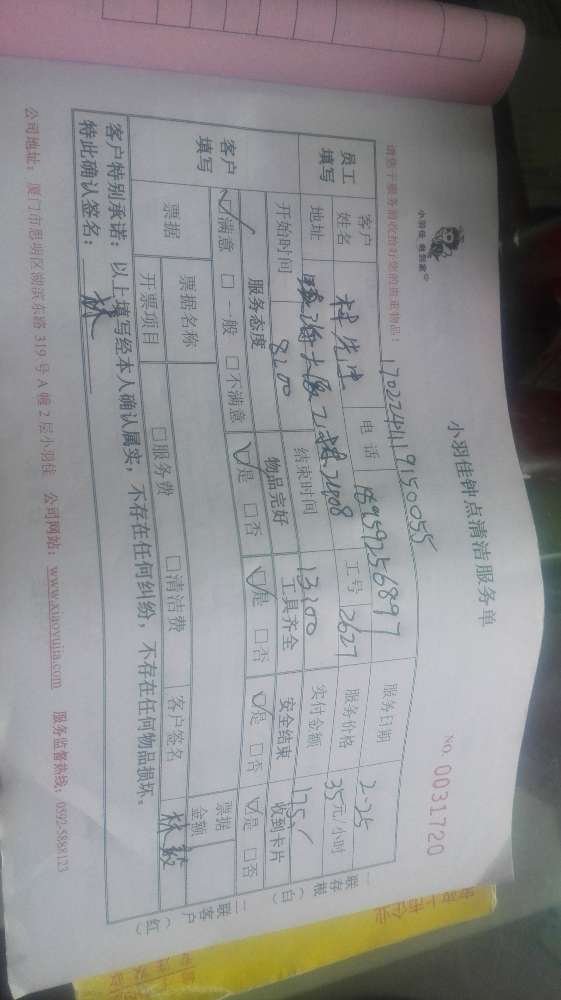 小羽佳钟点清洁服务单
小羽佳
NO. 0031720
请您于服务前收拾好您的贵重物品!
170224119150055
员工填写 客户姓名 林先生 电话 18959256897 服务日期 2-25
地址 工号 2627 服务价格 35元/小时
开始时间 8:00 结束时间 13:00 实付金额 175
客户填写 服务态度 物品完好 工具齐全 安全结束 收到卡片
☑满意 □一般 □不满意 ☑是 □否 ☑是 □否 ☑是 □否 ☑是 □否
票据 票据名称 客户签名 林毅 票据金额
开票项目 □服务费 □清洁费
客户特别承诺:以上填写经本人确认属实,不存在任何纠纷,不存在任何物品损坏。
特此确认签名: 林
一联存根(白) 二联客户(红)
公司地址:厦门市思明区湖滨东路 319 号 A 幢 2 层小羽佳 公司网站:www.xiaoyujia.com 服务监督热线:0592-5888123